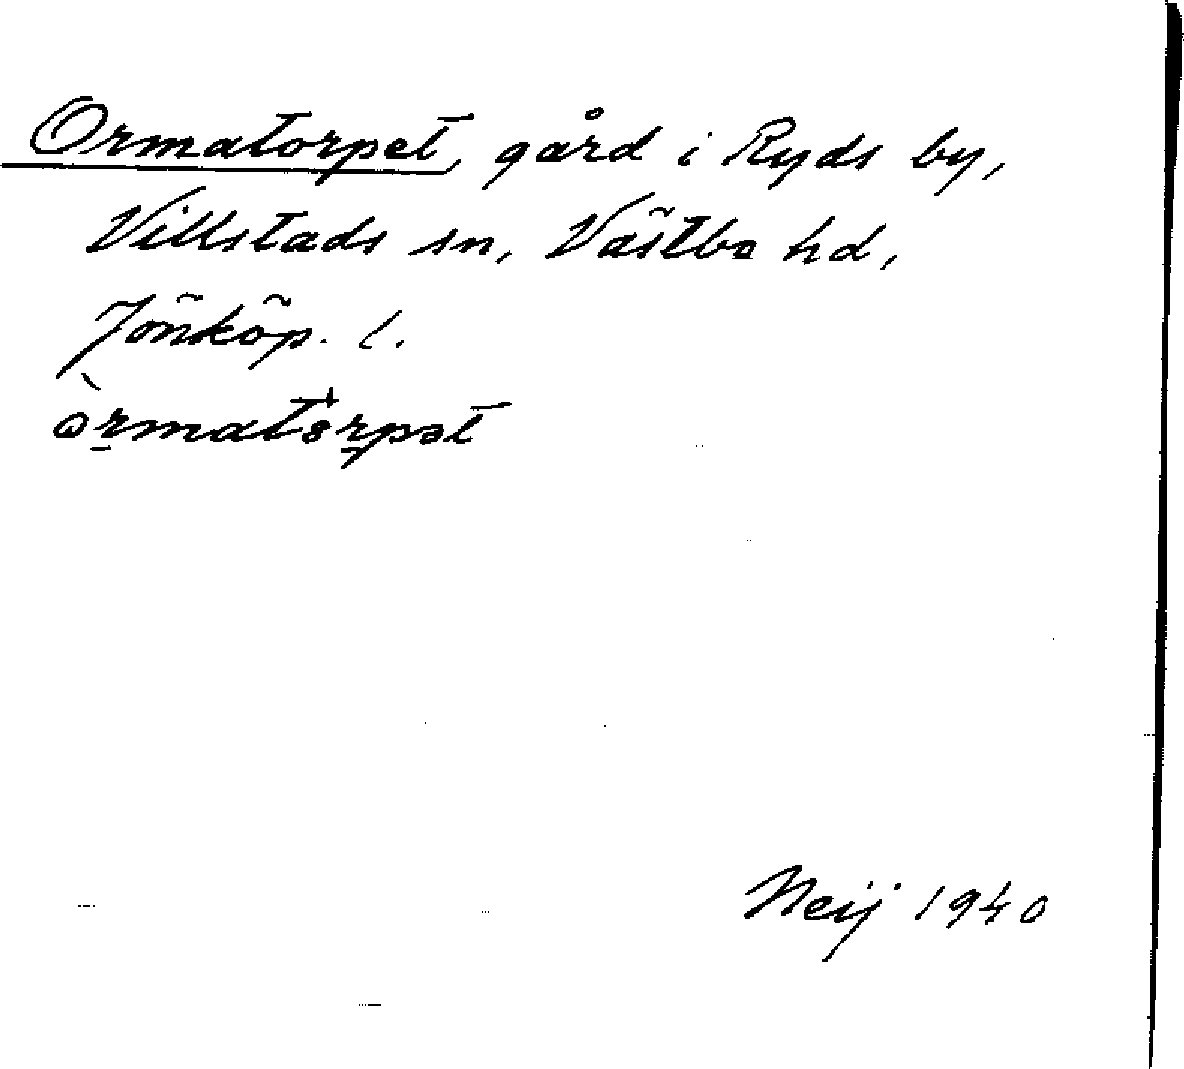 Ormatorpet, gård i Ryds by,
Villstads sn, Västbo hd,
Jönköp. l.
òrmatorpət
Neij 1940